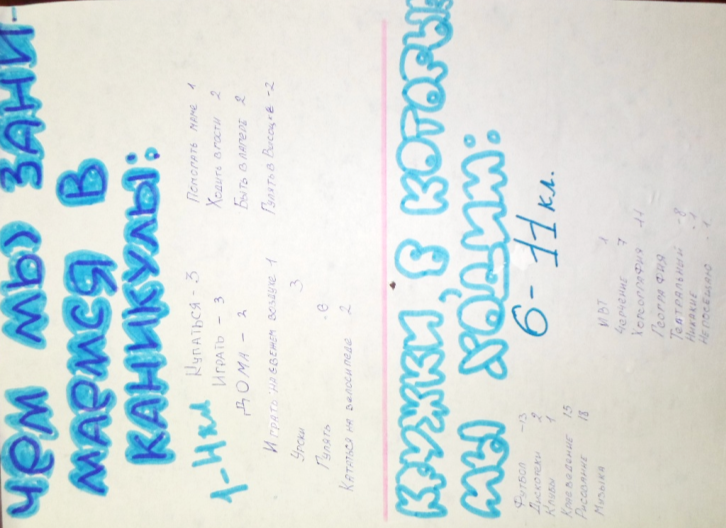 ЧЕМ МЫ ЗАНИ-
МАЕМСЯ В
КАНИКУЛЫ:
1-4 кл
Купаться - 3
Играть - 3
Дома - 2
Играть на свежем воздухе 1
Уроки 3
Гулять -6
Кататься на велосипеде 2
Помогать маме 1
Ходить в гости 2
Быть в лагере 2
Гулять в -2
КРУЖКИ, В КОТОРЫЕ
МЫ ХОДИМ:
6-11 кл.
Футбол -13
Дискотеки 2
Клубы 1
15
Рисование 18
Музыка
ИВТ 1
Черчение 7
Хореография -11
География
Театральный -8
Никакие -1
Непосещаю -1